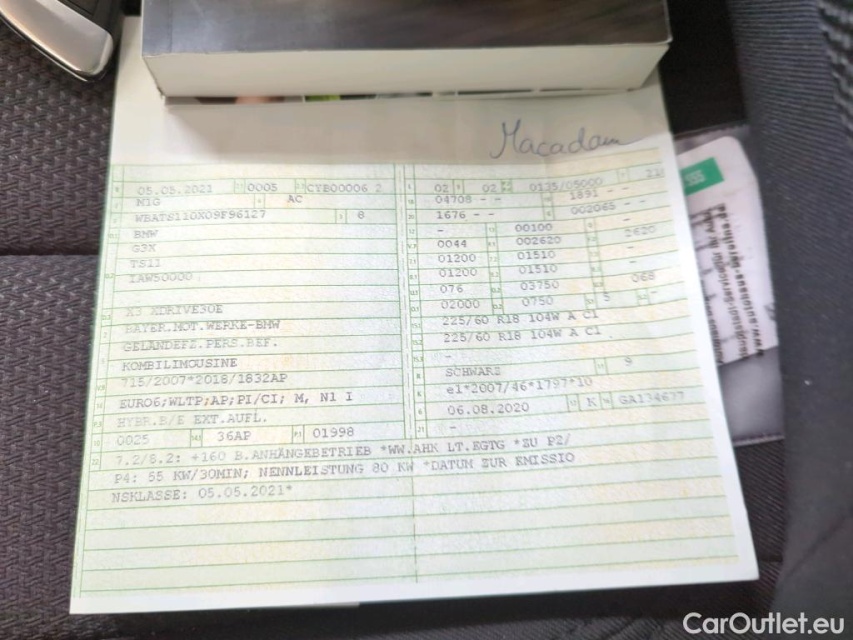 Macadam
05.05.2021 0005 CYB00006 2
M1G AC
WBATS110X09F96127 8
BMW
G3X
TS11
IAW50000
X3 XDRIVE30E
BAYER.MOT.WERKE-BMW
GELÄNDEFZ.PERS.BEF.
KOMBILIMOUSINE
715/2007*2018/1832AP
EURO6;WLTP;AP;PI/CI; M, N1 I
HYBR.B/E EXT.AUFL.
0025 36AP 01998
02 02 0135/05000
04708 - - 1891 - -
1676 - - 002065 -
- 00100 -
0044 002620 2620
01200 01510 -
01200 01510 -
076 03750 068
02000 0750 5 -
225/60 R18 104W A C1
225/60 R18 104W A C1
-
SCHWARZ 9
e1*2007/46*1797*10
06.08.2020 K GA134677
-
7.2/8.2: +160 B.ANHÄNGEBETRIEB *WW.AHK LT.EGTG *ZU P2/
P4: 55 KW/30MIN; NENNLEISTUNG 80 KW *DATUM ZUR EMISSIO
NSKLASSE: 05.05.2021*
CarOutlet.eu